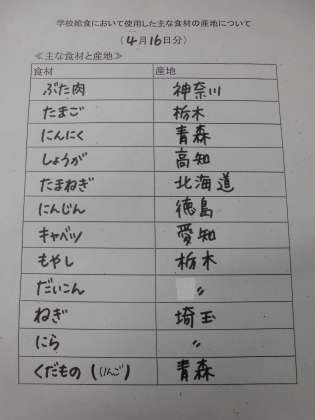 学校給食において使用した主な食材の産地について
(4月16日分)
≪主な食材と産地≫
食材 産地
ぶた肉 神奈川
たまご 栃木
にんにく 青森
しょうが 高知
たまねぎ 北海道
にんじん 徳島
キャベツ 愛知
もやし 栃木
だいこん 〃
ねぎ 埼玉
にら 〃
くだもの (りんご) 青森